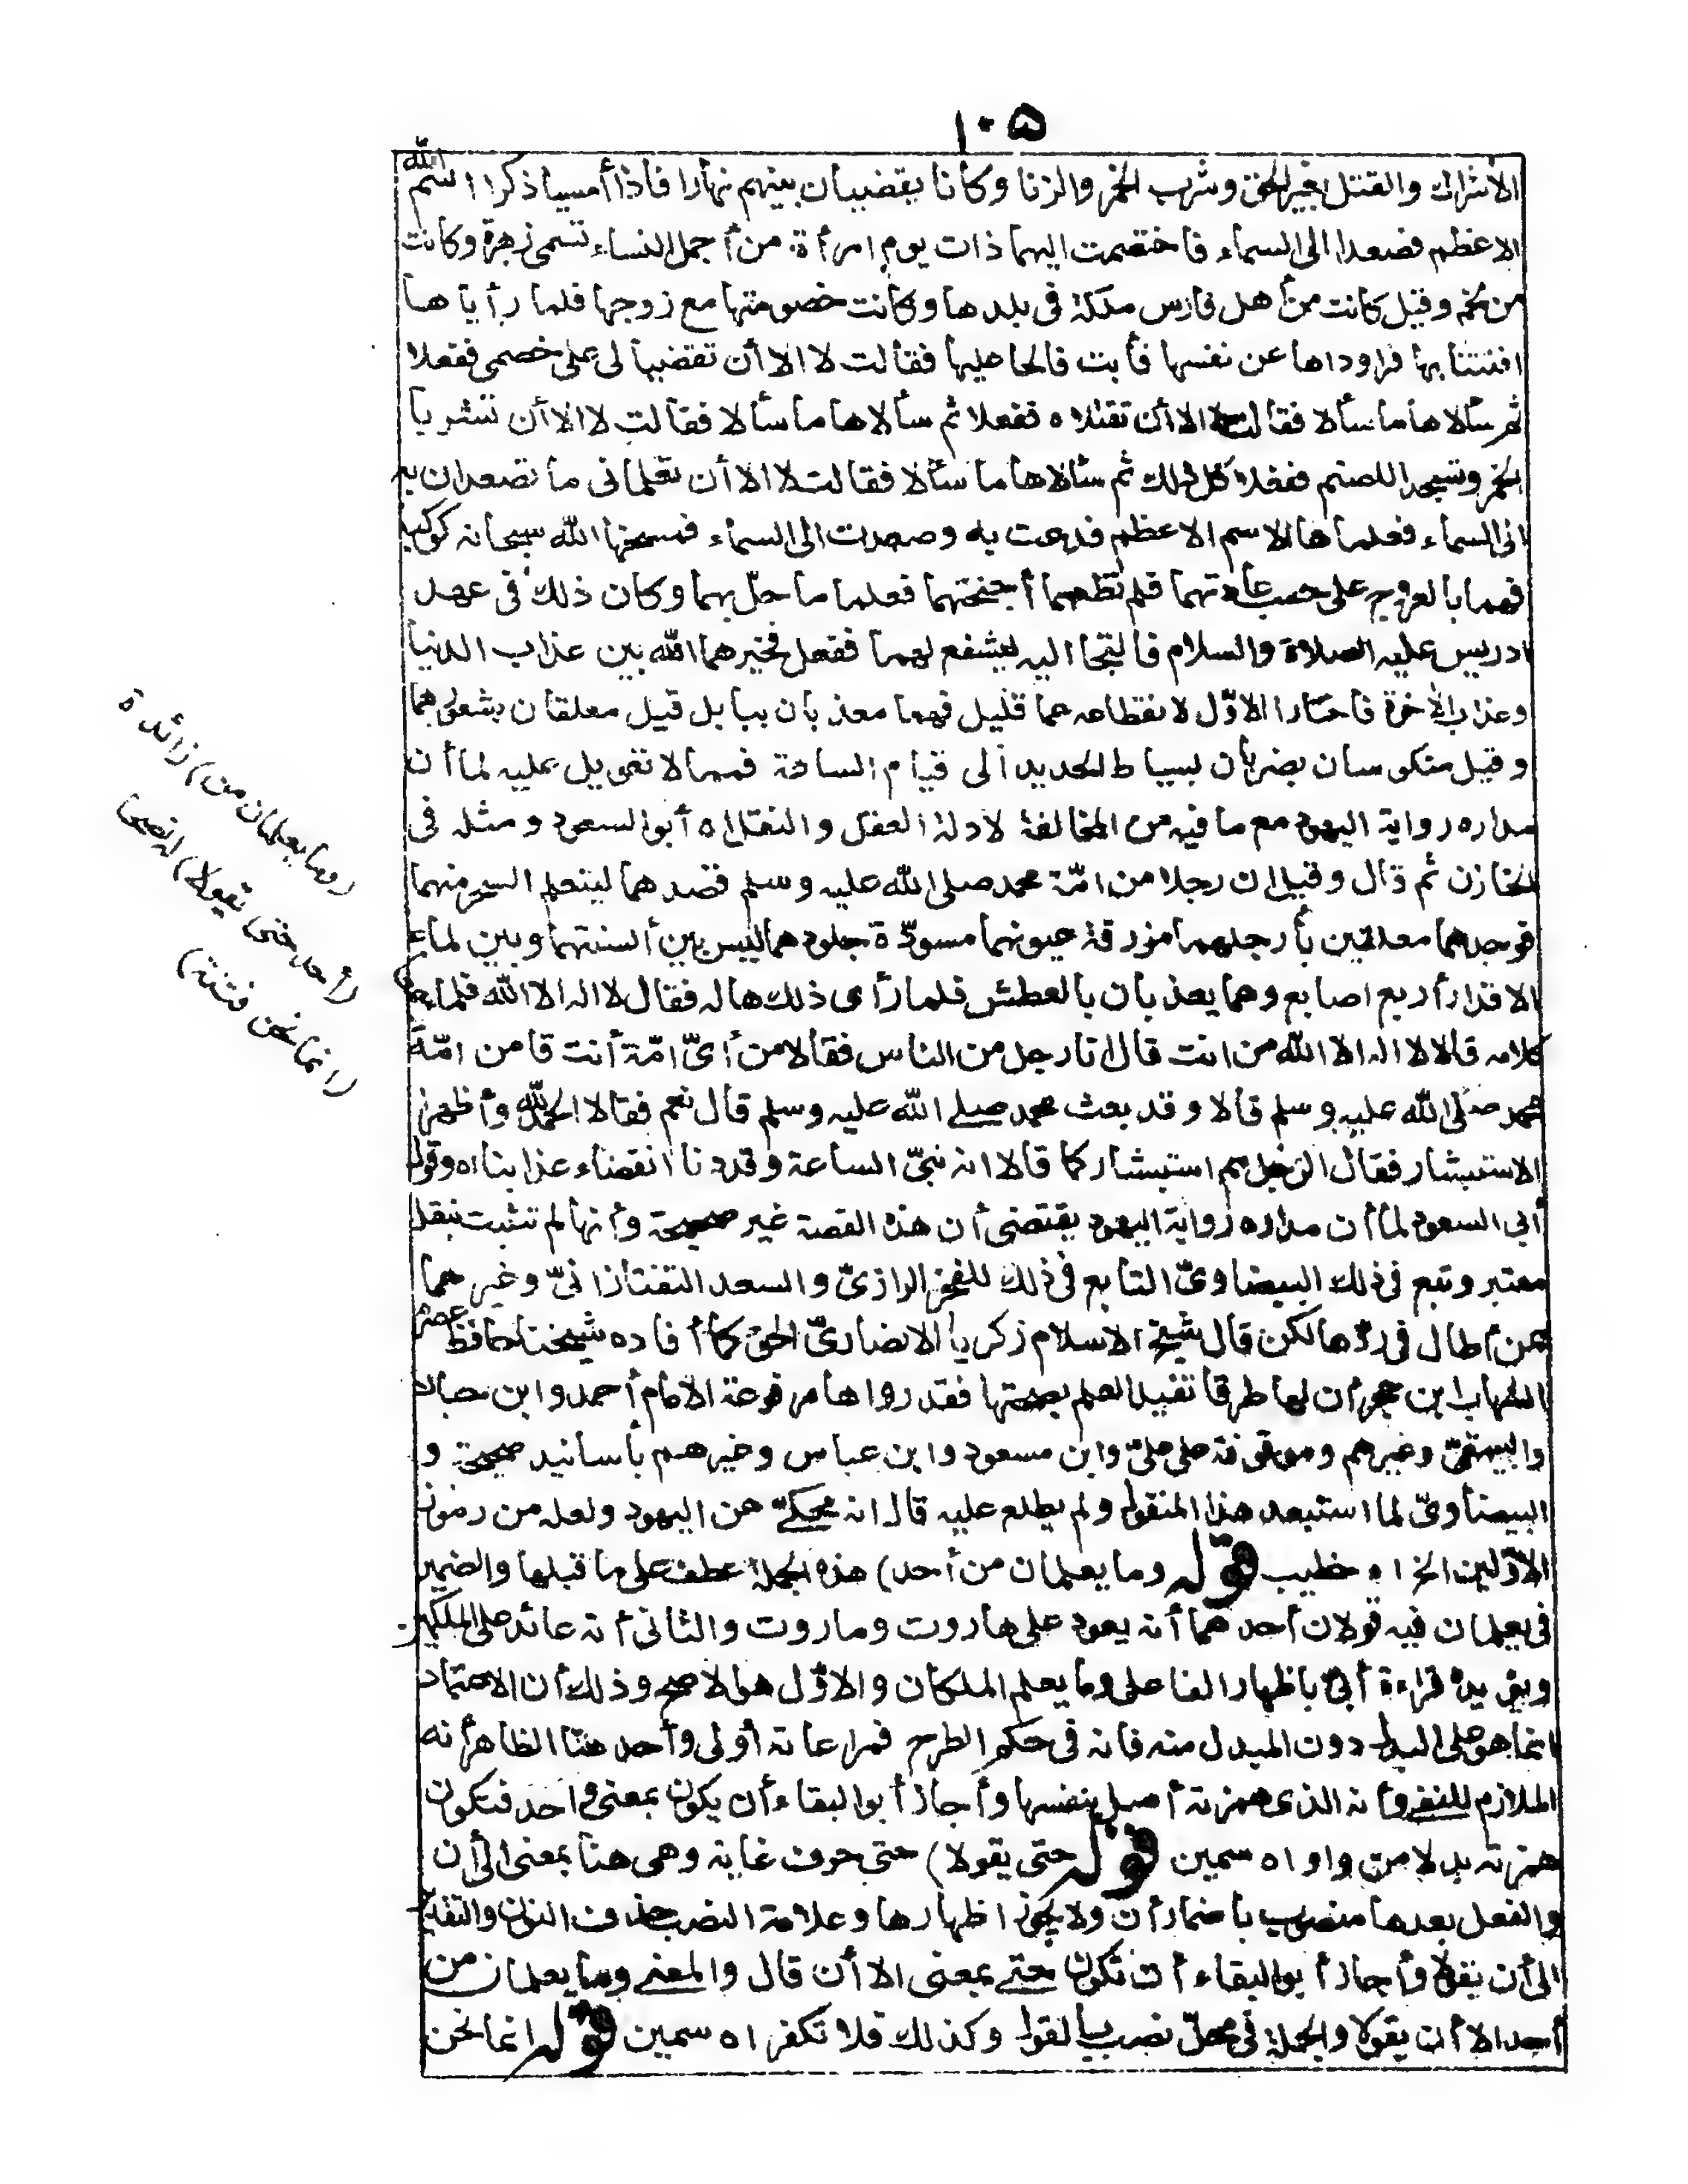 ١٠٥
الاشراك والقتل بغير الحق وشرب الخمر والزنا وكانا يقضيان بينهم نهارا فاذا أمسيا ذكرا اسم الله
الاعظم فصعدا الى السماء فاختصمت اليهما ذات يوم امرأة من أجمل النساء تسمى زهرة وكانت
من لخم وقيل كانت من أهل فارس ملكة فى بلدها وكانت خصومتها مع زوجها فلما رأياها
افتتنا بها فراوداها عن نفسها فأبت فالحا عليها فقالت لا الا أن تقضيا لى على خصمى ففعلا
ثم سألاها ما سألا فقالت لا الا أن تقتلاه ففعلا ثم سألاها ما سألا فقالت لا الا أن تشربا
الخمر وتسجدا للصنم ففعلا كل ذلك ثم سألاها ما سألا فقالت لا الا أن تعلمانى ما تصعدان به
الى السماء فعلماها الاسم الاعظم فدعت به وصعدت الى السماء فمسخها الله سبحانه كوكبا
فهما بالعروج على حسب عادتهما فلم تطعهما أجنحتهما فعلما ما حلّ بهما وكان ذلك فى عهد
ادريس عليه الصلاة والسلام فالتجا اليه ليشفع لهما ففعل فخيرهما الله بين عذاب الدنيا
وعذاب الآخرة فاختارا الاوّل لانقطاعه عما قليل فهما معذبان ببابل قيل معلقان بشعورهما
وقيل منكوسان يضربان بسياط الحديد الى قيام الساعة فمما لا تعويل عليه لما أن
مداره رواية اليهود مع ما فيه من المخالفة لادلة العقل والنقل اه أبو السعود ومثله فى
الخازن ثم قال وقيل ان رجلا من امّة محمد صلى الله عليه وسلم قصدهما ليتعلم السحر منهما
فوجدهما معلقين بأرجلهما مزرقة عيونهما مسودّة جلودهما ليس بين ألسنتهما وبين الماء
الا قدر أربع أصابع وهما يعذبان بالعطش فلما رأى ذلك هاله فقال لا اله الا الله فلما سمعا
كلامه قالا لا اله الا الله من انت قال انا رجل من الناس فقالا من أىّ امّة أنت قال من امّة
محمد صلى الله عليه وسلم قالا وقد بعث محمد صلى الله عليه وسلم قال نعم فقالا الحمد لله وأظهرا
الاستبشار فقال الرجل مم استبشاركما قالا انه نبىّ الساعة وقد دنا انقضاء عذابنا اه وقول
أبى السعود لما أن مداره رواية اليهود يقتضى أن هذه القصة غير صحيحة وأنها لم تثبت بنقل
معتبر وتبع فى ذلك البيضاوىّ التابع فى ذلك للفخر الرازىّ والسعد التفتازانىّ وغيرهما
ممن أطال فى ردّها لكن قال شيخ الاسلام زكريا الانصارىّ الحق كما أفاده شيخنا حافظ عصره
الشهاب ابن حجر أن لها طرقا تفيد العلم بصحتها فقد رواها مرفوعة الامام أحمد وابن حبان
والبيهقىّ وغيرهم وموقوفة على علىّ وابن مسعود وابن عباس وغيرهم بأسانيد صحيحة و
البيضاوىّ لما استبعد هذا المنقول ولم يطلع عليه قال انه محكىّ عن اليهود ولعله من رموز
الاوّلين الخ اه خطيب قوله وما يعلمان من أحد) هذه الجملة عطف على ما قبلها والضمير
فى يعلمان فيه قولان أحدهما أنه يعود على هاروت وماروت والثانى أنه عائد على الملكين
ويؤيده قراءة أبىّ باظهار الفاعل وما يعلم الملكان والاوّل هو الاصح وذلك أن الاعتماد
انما هو على البدل دون المبدل منه فانه فى حكم الطرح فمراعاته أولى وأحد هنا الظاهر أنه
الملازم للنفى وأنه الذى همزته أصل بنفسها وأجاز أبو البقاء أن يكون بمعنى واحد فتكون
همزته بدلا من واو اه سمين قوله حتى يقولا) حتى حرف غاية وهى هنا بمعنى الى أن
والفعل بعدها منصوب باضمار أن ولا يجوز اظهارها وعلامة النصب حذف النون والتقدير
الى أن يقولا وأجاز أبو البقاء أن تكون حتى بمعنى الا أن قال والمعنى وما يعلمان من
أحد الا أن يقولا والجملة فى محلّ نصب بالقول وكذلك فلا تكفر اه سمين قوله انما نحن
(وما يعلمان من) زائدة
(أحد حتى يقولا) له نصحا
(انما نحن فتنة)